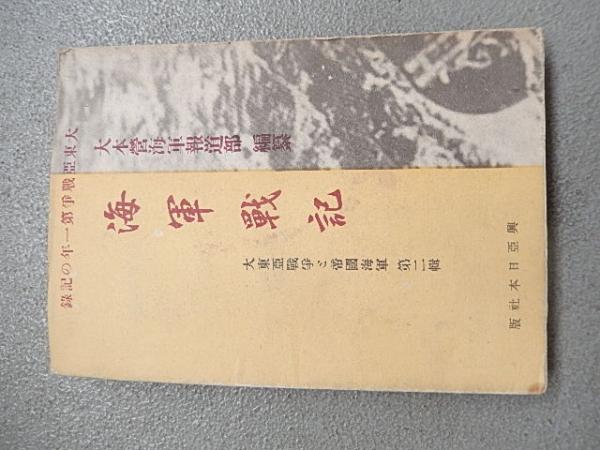 大東亞戰爭第一年の記錄
大本營海軍報道部 編纂
海軍戰記
大東亞戰爭と帝國海軍 第二輯
興亞日本社版